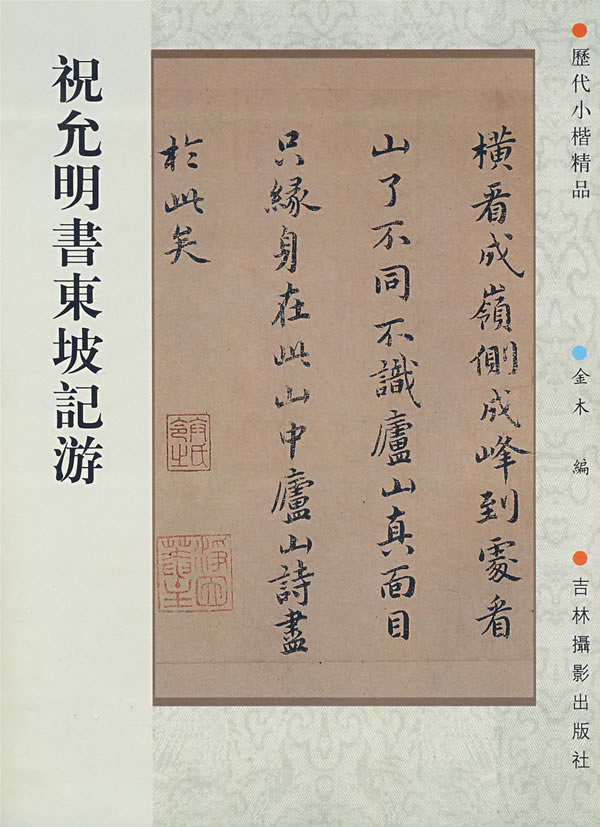 歷代小楷精品
金木 編
吉林攝影出版社
橫看成嶺側成峰到處看
山了不同不識廬山真面目
只緣身在此山中廬山詩盡
於此矣
祝允明書東坡記游